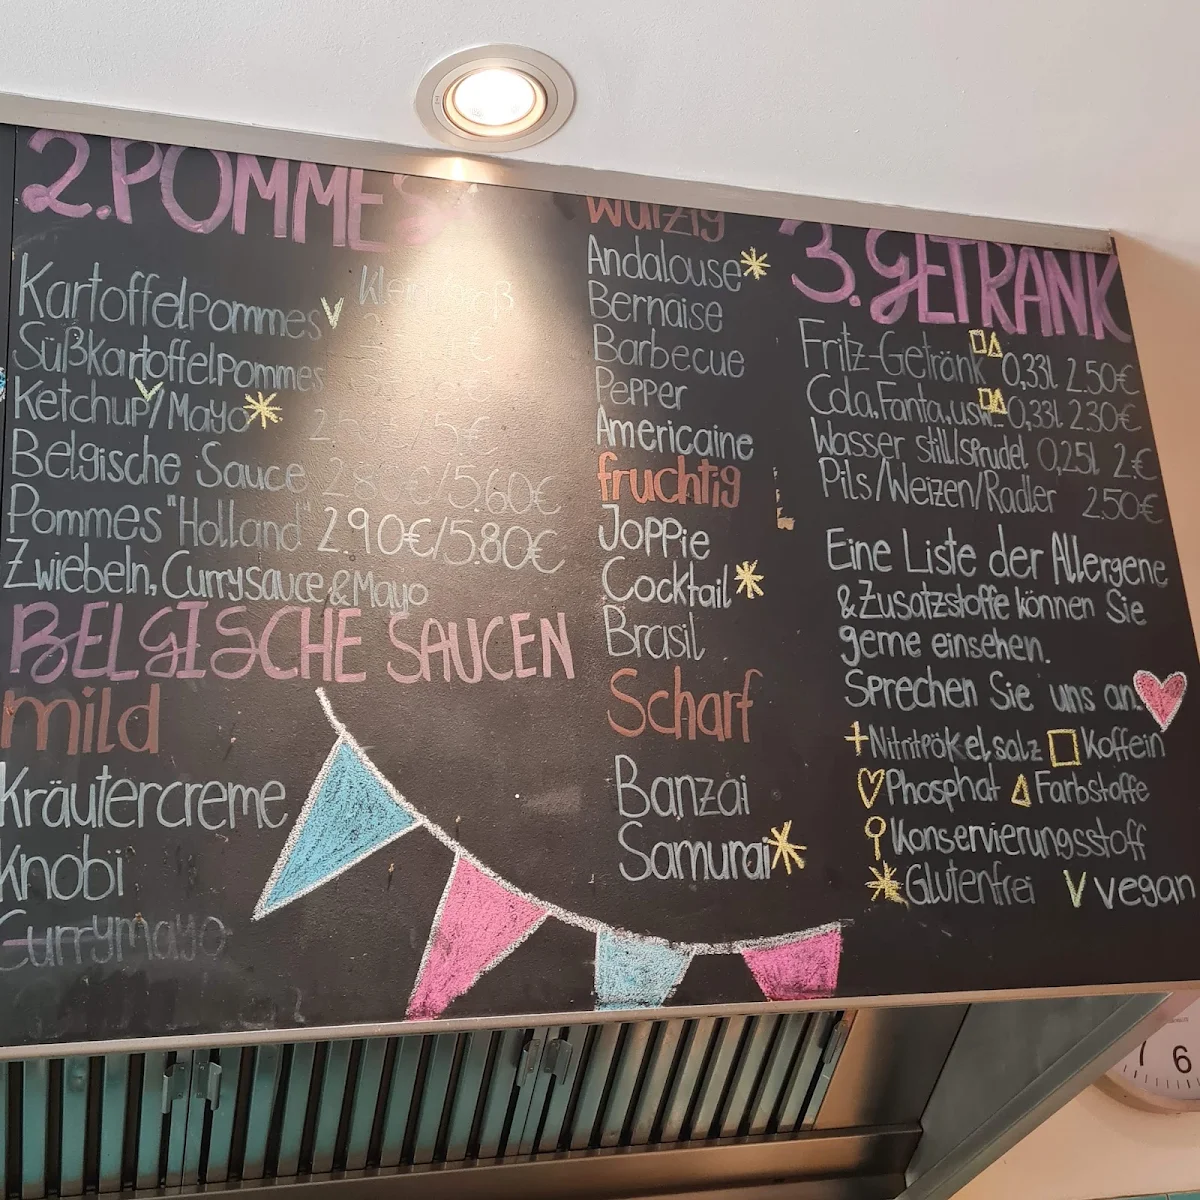 2. POMMES
Kartoffelpommes V
Süßkartoffelpommes
Ketchup/Mayo* 2.50€/5€
V
Belgische Sauce 2.80€/5.60€
Pommes "Holland" 2.90€/5.80€
Zwiebeln, Currysauce & Mayo
BELGISCHE SAUCEN
mild
Kräutercreme
Knobi
Currymayo
würzig
Andalouse*
Bernaise
Barbecue
Pepper
Americaine
fruchtig
Joppie
Cocktail*
Brasil
Scharf
Banzai
Samurai*
3. GETRÄNK
Fritz-Getränk □△ 0,33l 2.50€
Cola, Fanta, usw. □△ 0,33l 2.30€
Wasser still/sprudel 0,25l 2.€
Pils/Weizen/Radler 2.50€
Eine Liste der Allergene
& Zusatzstoffe können Sie
gerne einsehen.
Sprechen Sie uns an.
+ Nitritpökelsalz □ Koffein
♡ Phosphat △ Farbstoffe
Konservierungsstoff
* Glutenfrei V vegan
7 6